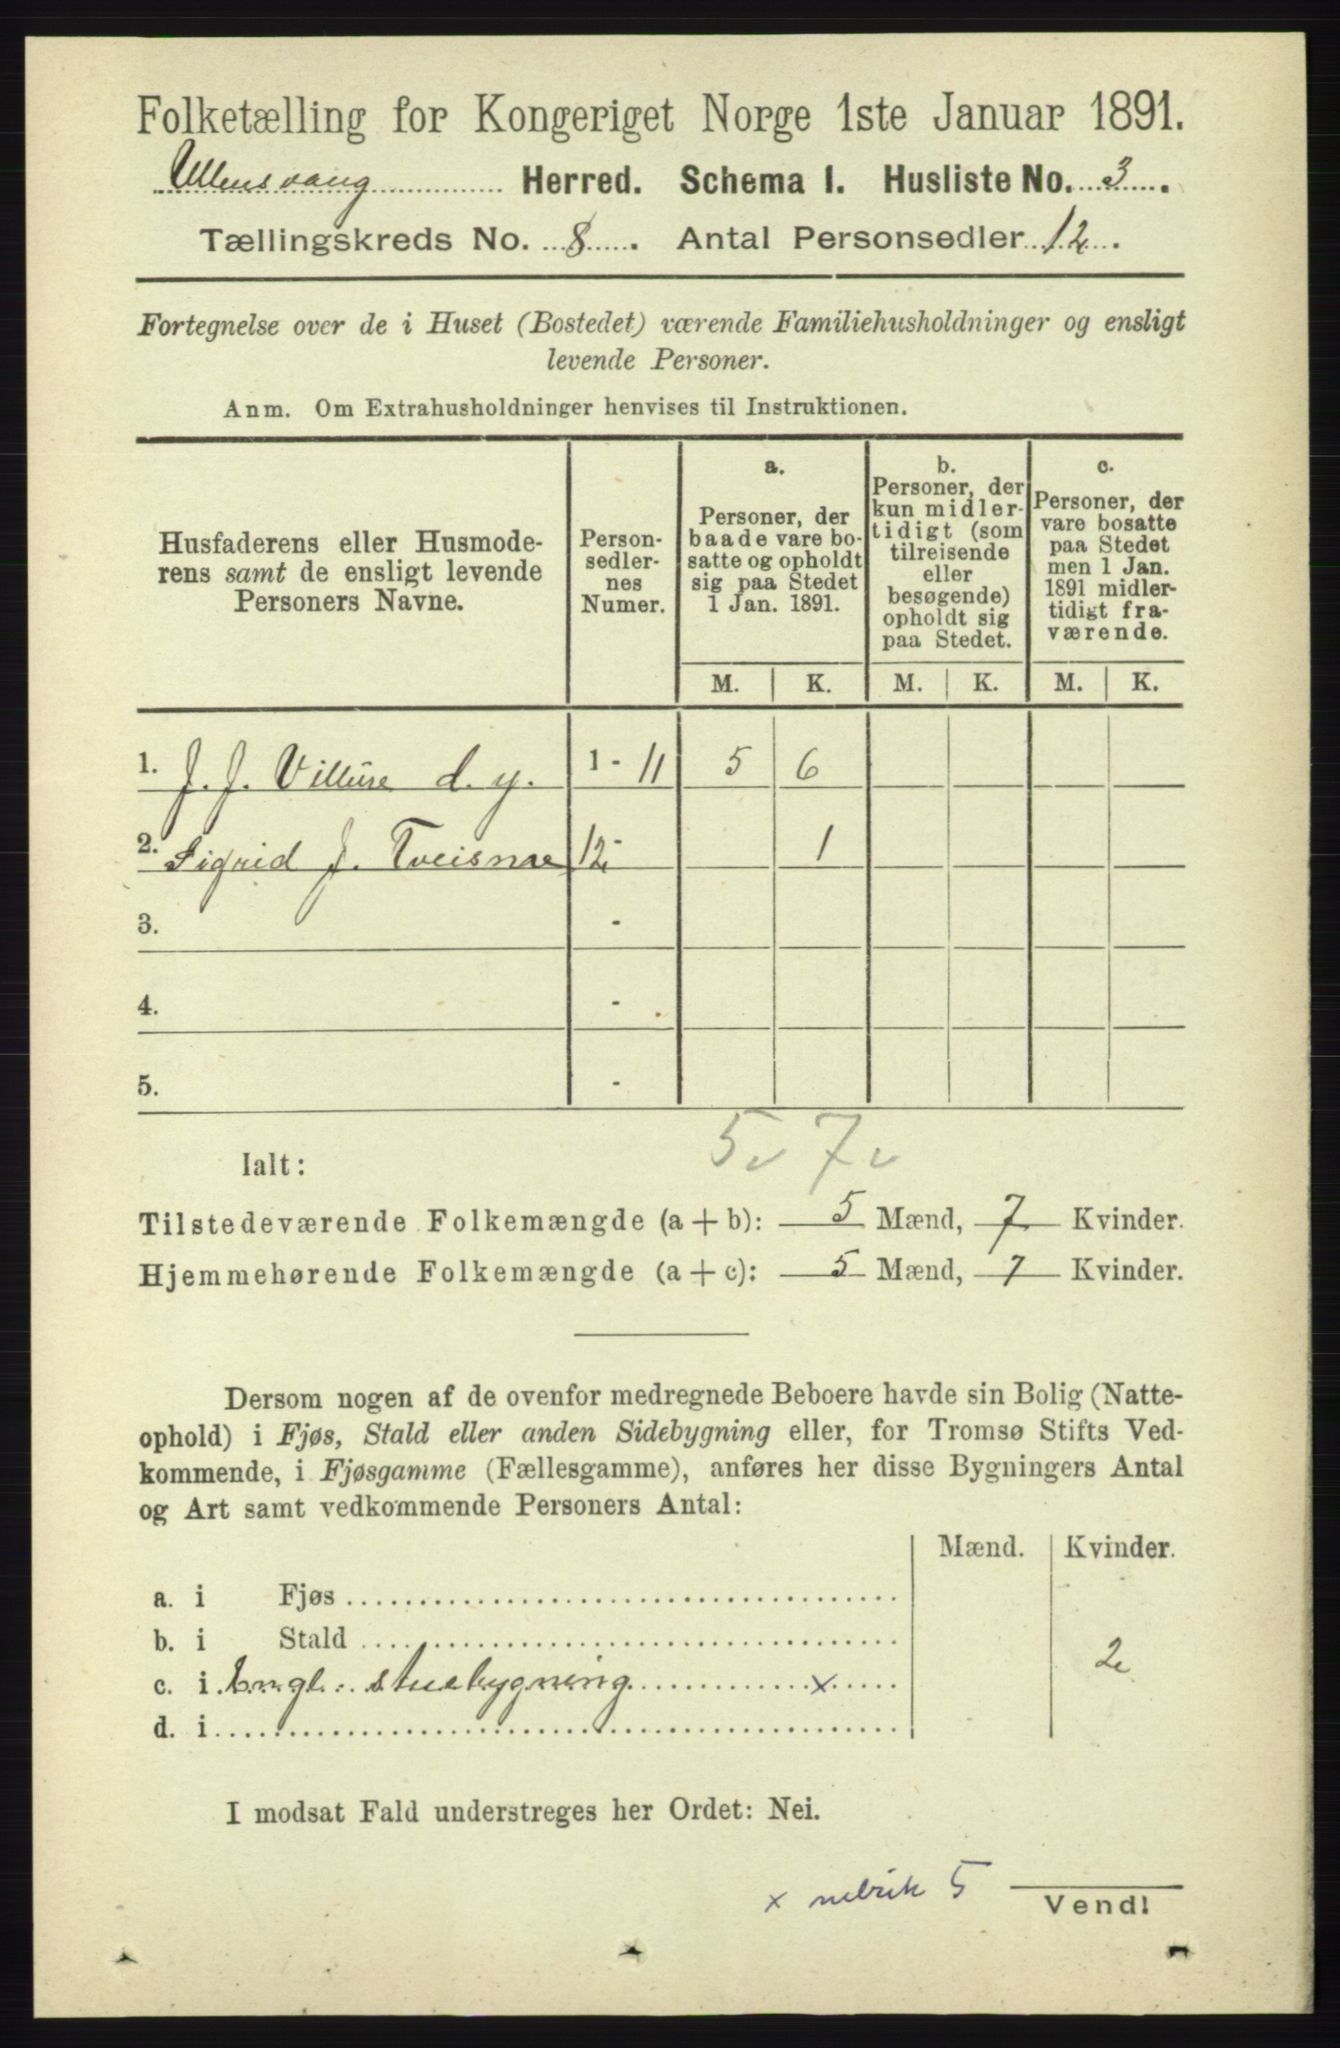 Folketælling for Kongeriget Norge 1ste Januar 1891.
Ullensvang Herred. Schema I. Husliste No. 3.
Tællingskreds No. 8. Antal Personsedler 12.
Fortegnelse over de i Huset (Bostedet) værende Familiehusholdninger og ensligt
levende Personer.
Anm. Om Extrahusholdninger henvises til Instruktionen.
Husfaderens eller Husmode-
rens samt de ensligt levende
Personers Navne.
Person-
sedler-
nes
Numer.
a.
Personer, der
baade vare bo-
satte og opholdt
sig paa Stedet
1 Jan. 1891.
b.
Personer, der
kun midler-
tidigt (som
tilreisende
eller
besøgende)
opholdt sig
paa Stedet.
c.
Personer, der
vare bosatte
paa Stedet
men 1 Jan.
1891 midler-
tidigt fra-
værende.
M. K. M. K. M. K.
1. J. J. Villure d. y. 1 - 11 5 6
2. Sigrid J. Tveisme 12 - 1
3. -
4. -
5. -
5 7
Ialt:
Tilstedeværende Folkemængde (a + b): 5 Mænd, 7 Kvinder.
Hjemmehørende Folkemængde (a + c): 5 Mænd, 7 Kvinder.
Dersom nogen af de ovenfor medregnede Beboere havde sin Bolig (Natte-
ophold) i Fjøs, Stald eller anden Sidebygning eller, for Tromsø Stifts Ved-
kommende, i Fjøsgamme (Fællesgamme), anføres her disse Bygningers Antal
og Art samt vedkommende Personers Antal:
Mænd. Kvinder.
a. i Fjøs
b. i Stald
c. i stuebygning x 2
d. i
I modsat Fald understreges her Ordet: Nei.
x rubrik 5
Vend!